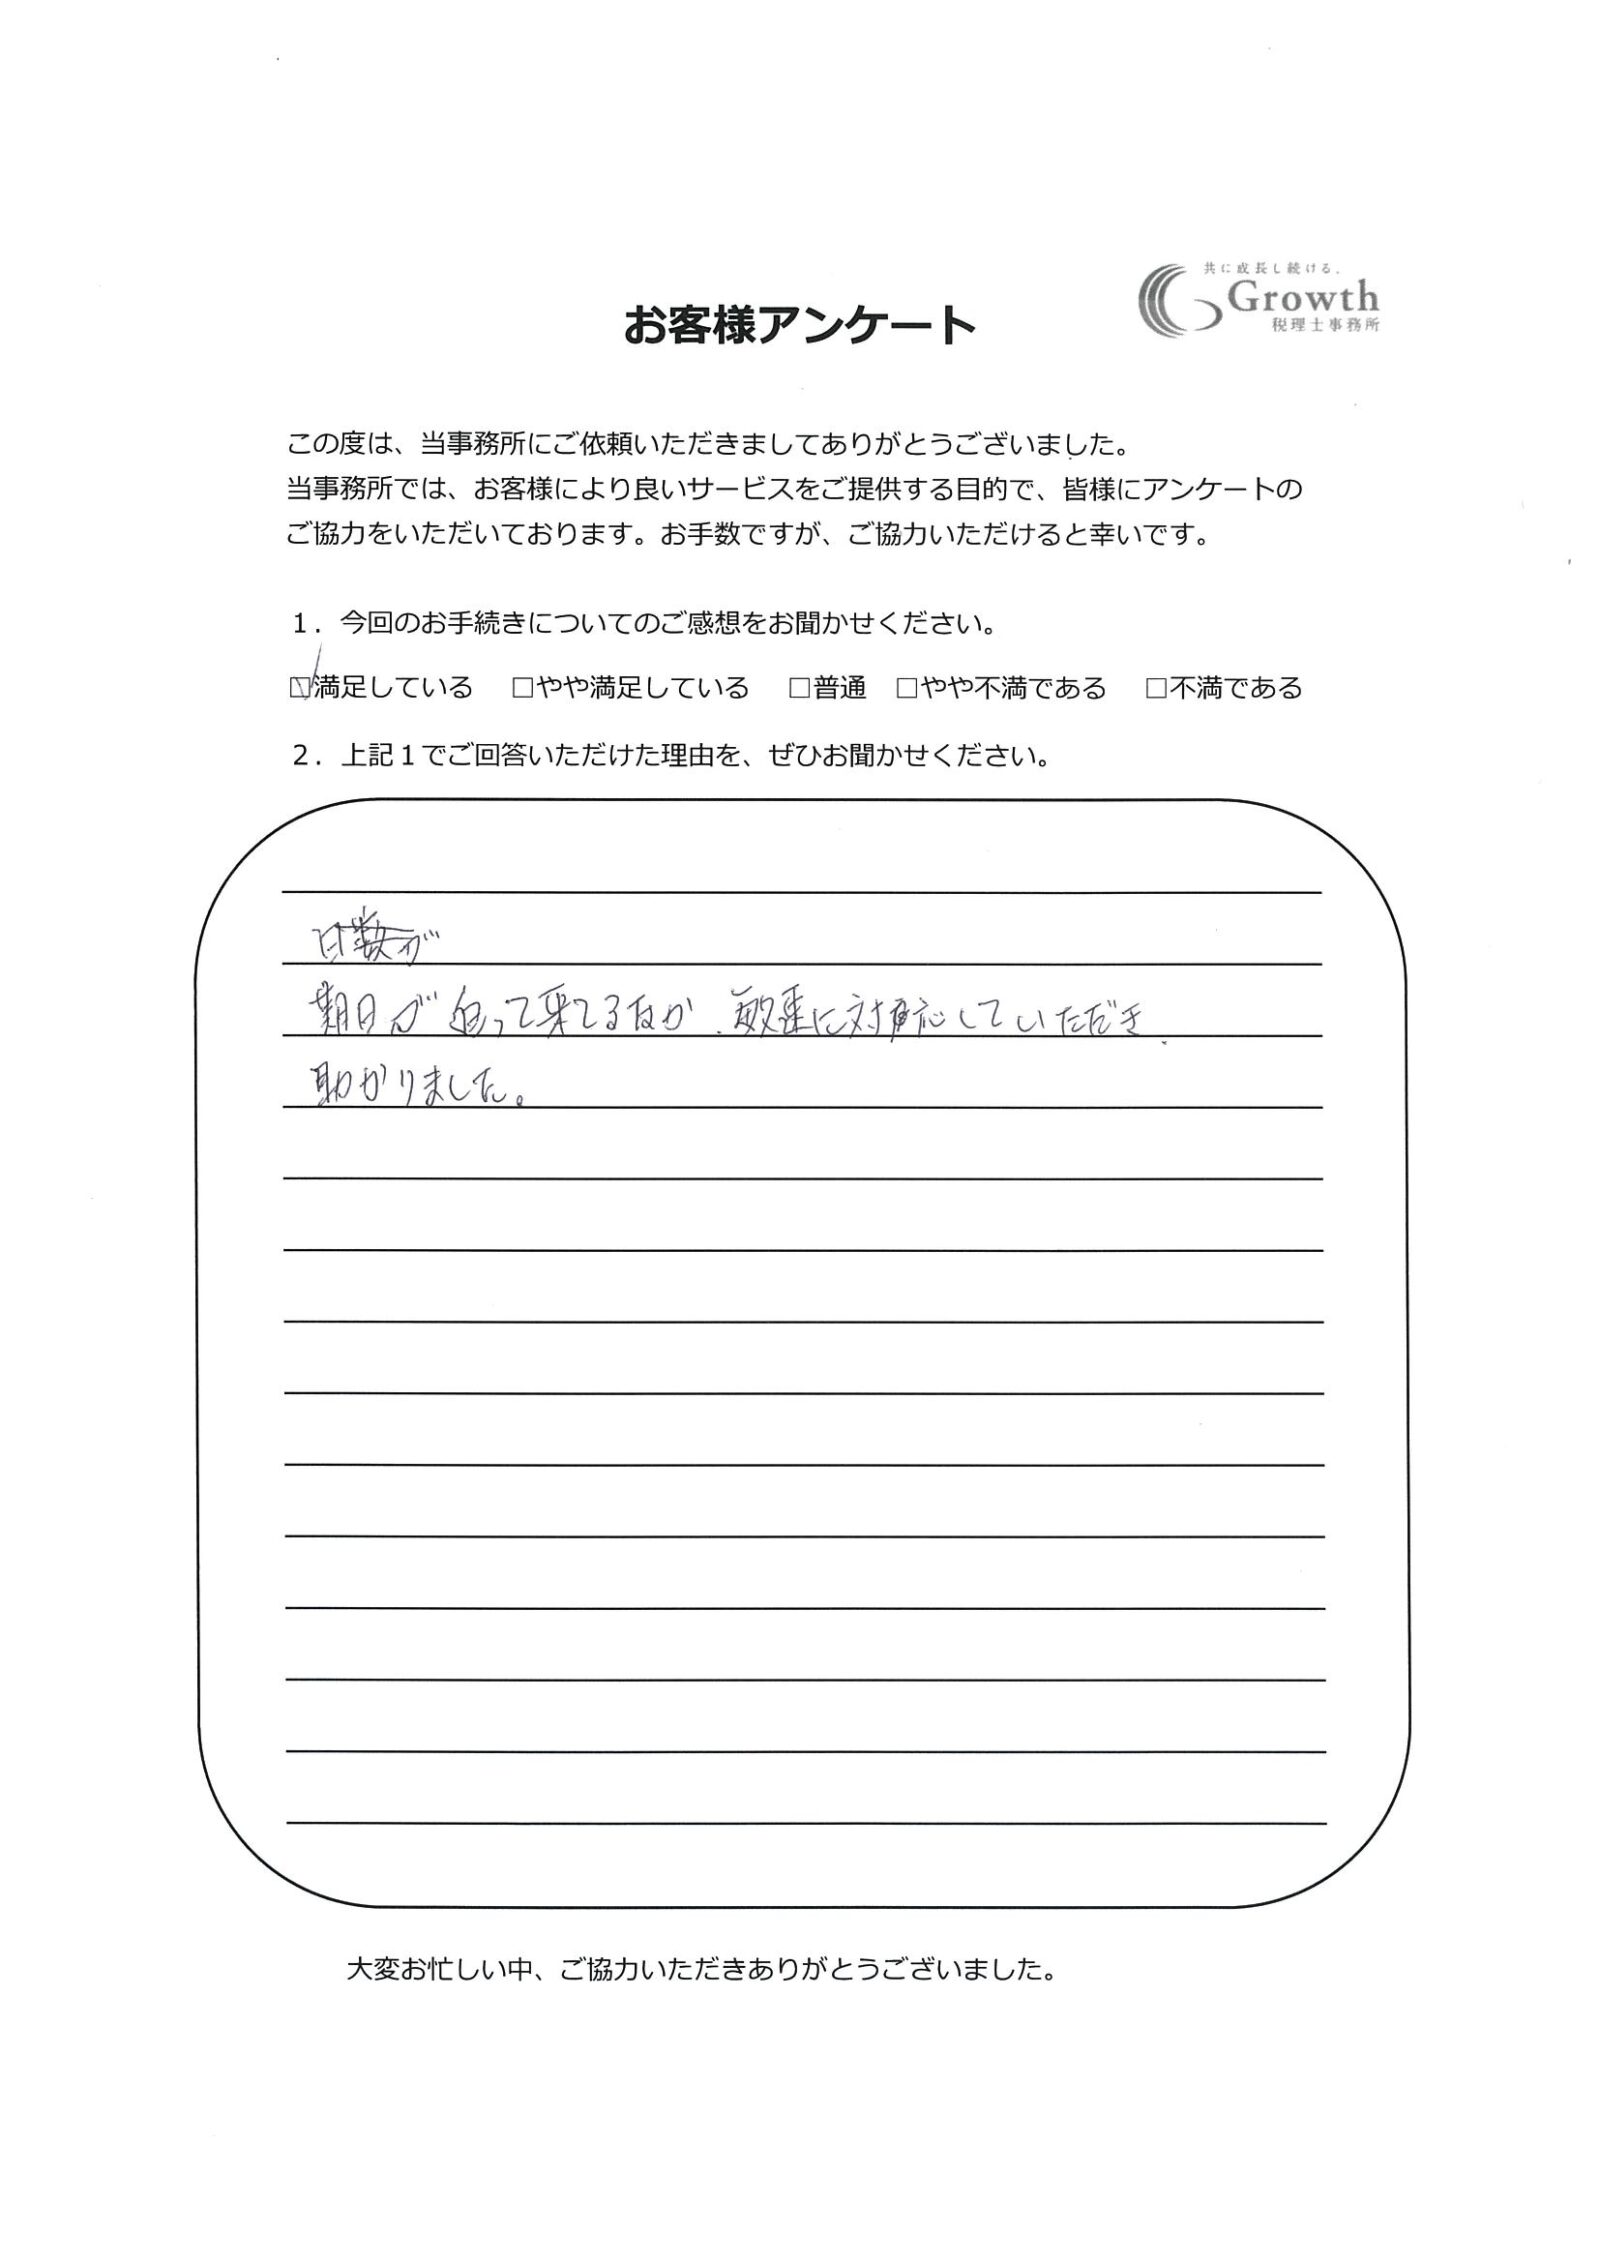 共に成長し続ける.
Growth
税理士事務所
お客様アンケート
この度は、当事務所にご依頼いただきましてありがとうございました。
当事務所では、お客様により良いサービスをご提供する目的で、皆様にアンケートの
ご協力をいただいております。お手数ですが、ご協力いただけると幸いです。
1．今回のお手続きについてのご感想をお聞かせください。
☑満足している □やや満足している □普通 □やや不満である □不満である
2．上記１でご回答いただけた理由を、ぜひお聞かせください。
日数が
期日が迫って来てるなか、敏速に対応していただき
助かりました。
大変お忙しい中、ご協力いただきありがとうございました。